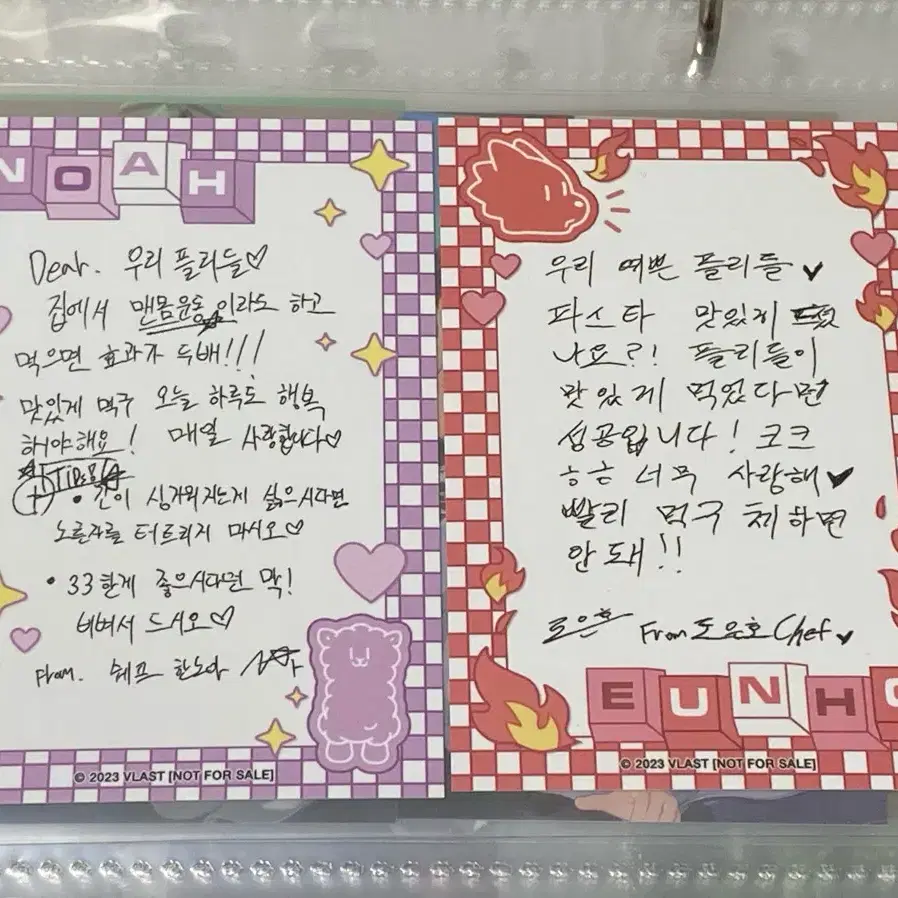 NOAH
Dear. 우리 플리들♡
집에서 맨몸운동이라도 하고
먹으면 효과가 두배!!!
맛있게 먹구 오늘 하루도 행복
해야해요! 매일 사랑합니다♡
• 간이 싱거워지는게 싫으시다면
노른자를 터트리지 마시오♡
• 33한게 좋으시다면 막!
비벼서 드시오♡
From. 쉐프 한노아
© 2023 VLAST [NOT FOR SALE]
우리 예쁜 플리들♥
파스타 맛있게
나요?! 플리들이
맛있게 먹었다면
성공입니다! 크크
ㅎㅎ 너무 사랑해♥
빨리 먹구 체하면
안 돼!!
도은호 From 도은호 Chef♥
EUNHO
© 2023 VLAST [NOT FOR SALE]